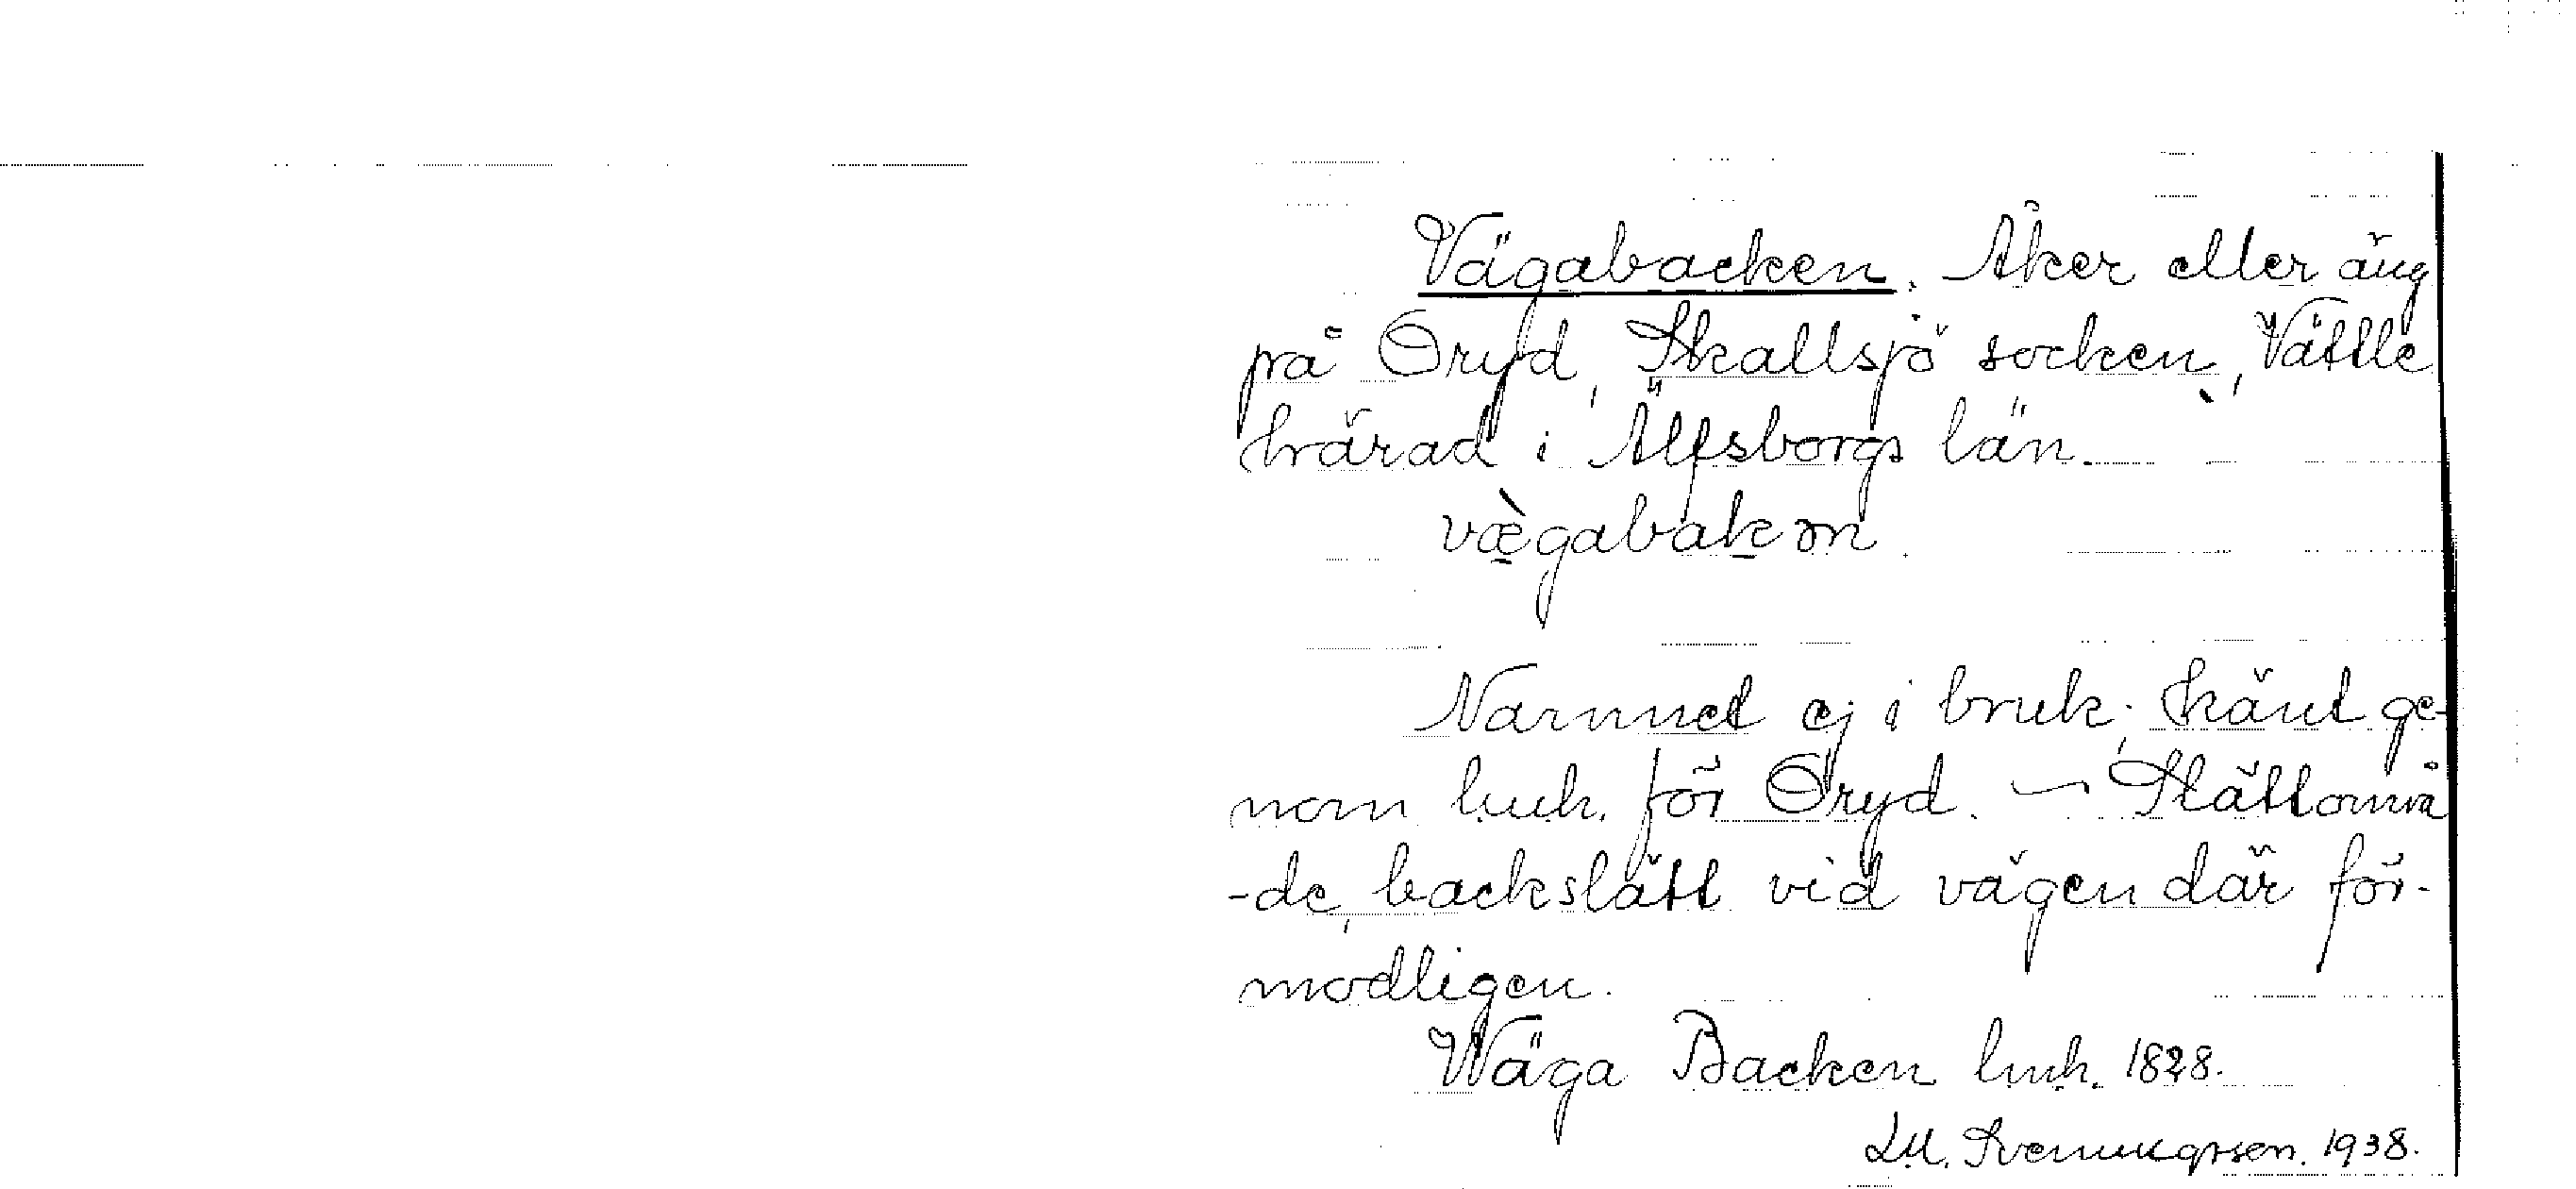 Vägabacken. Åker eller äng
på Öryd, Skallsjö socken, Vättle
härad i Älfsborgs län.
vægabakən.
Namnet ej i bruk; känt ge-
nom lmh. för Öryd. — Slåttområ
-de, backslått vid vägen där för-
modligen.
Wäga Backen lmh. 1828.
1938.